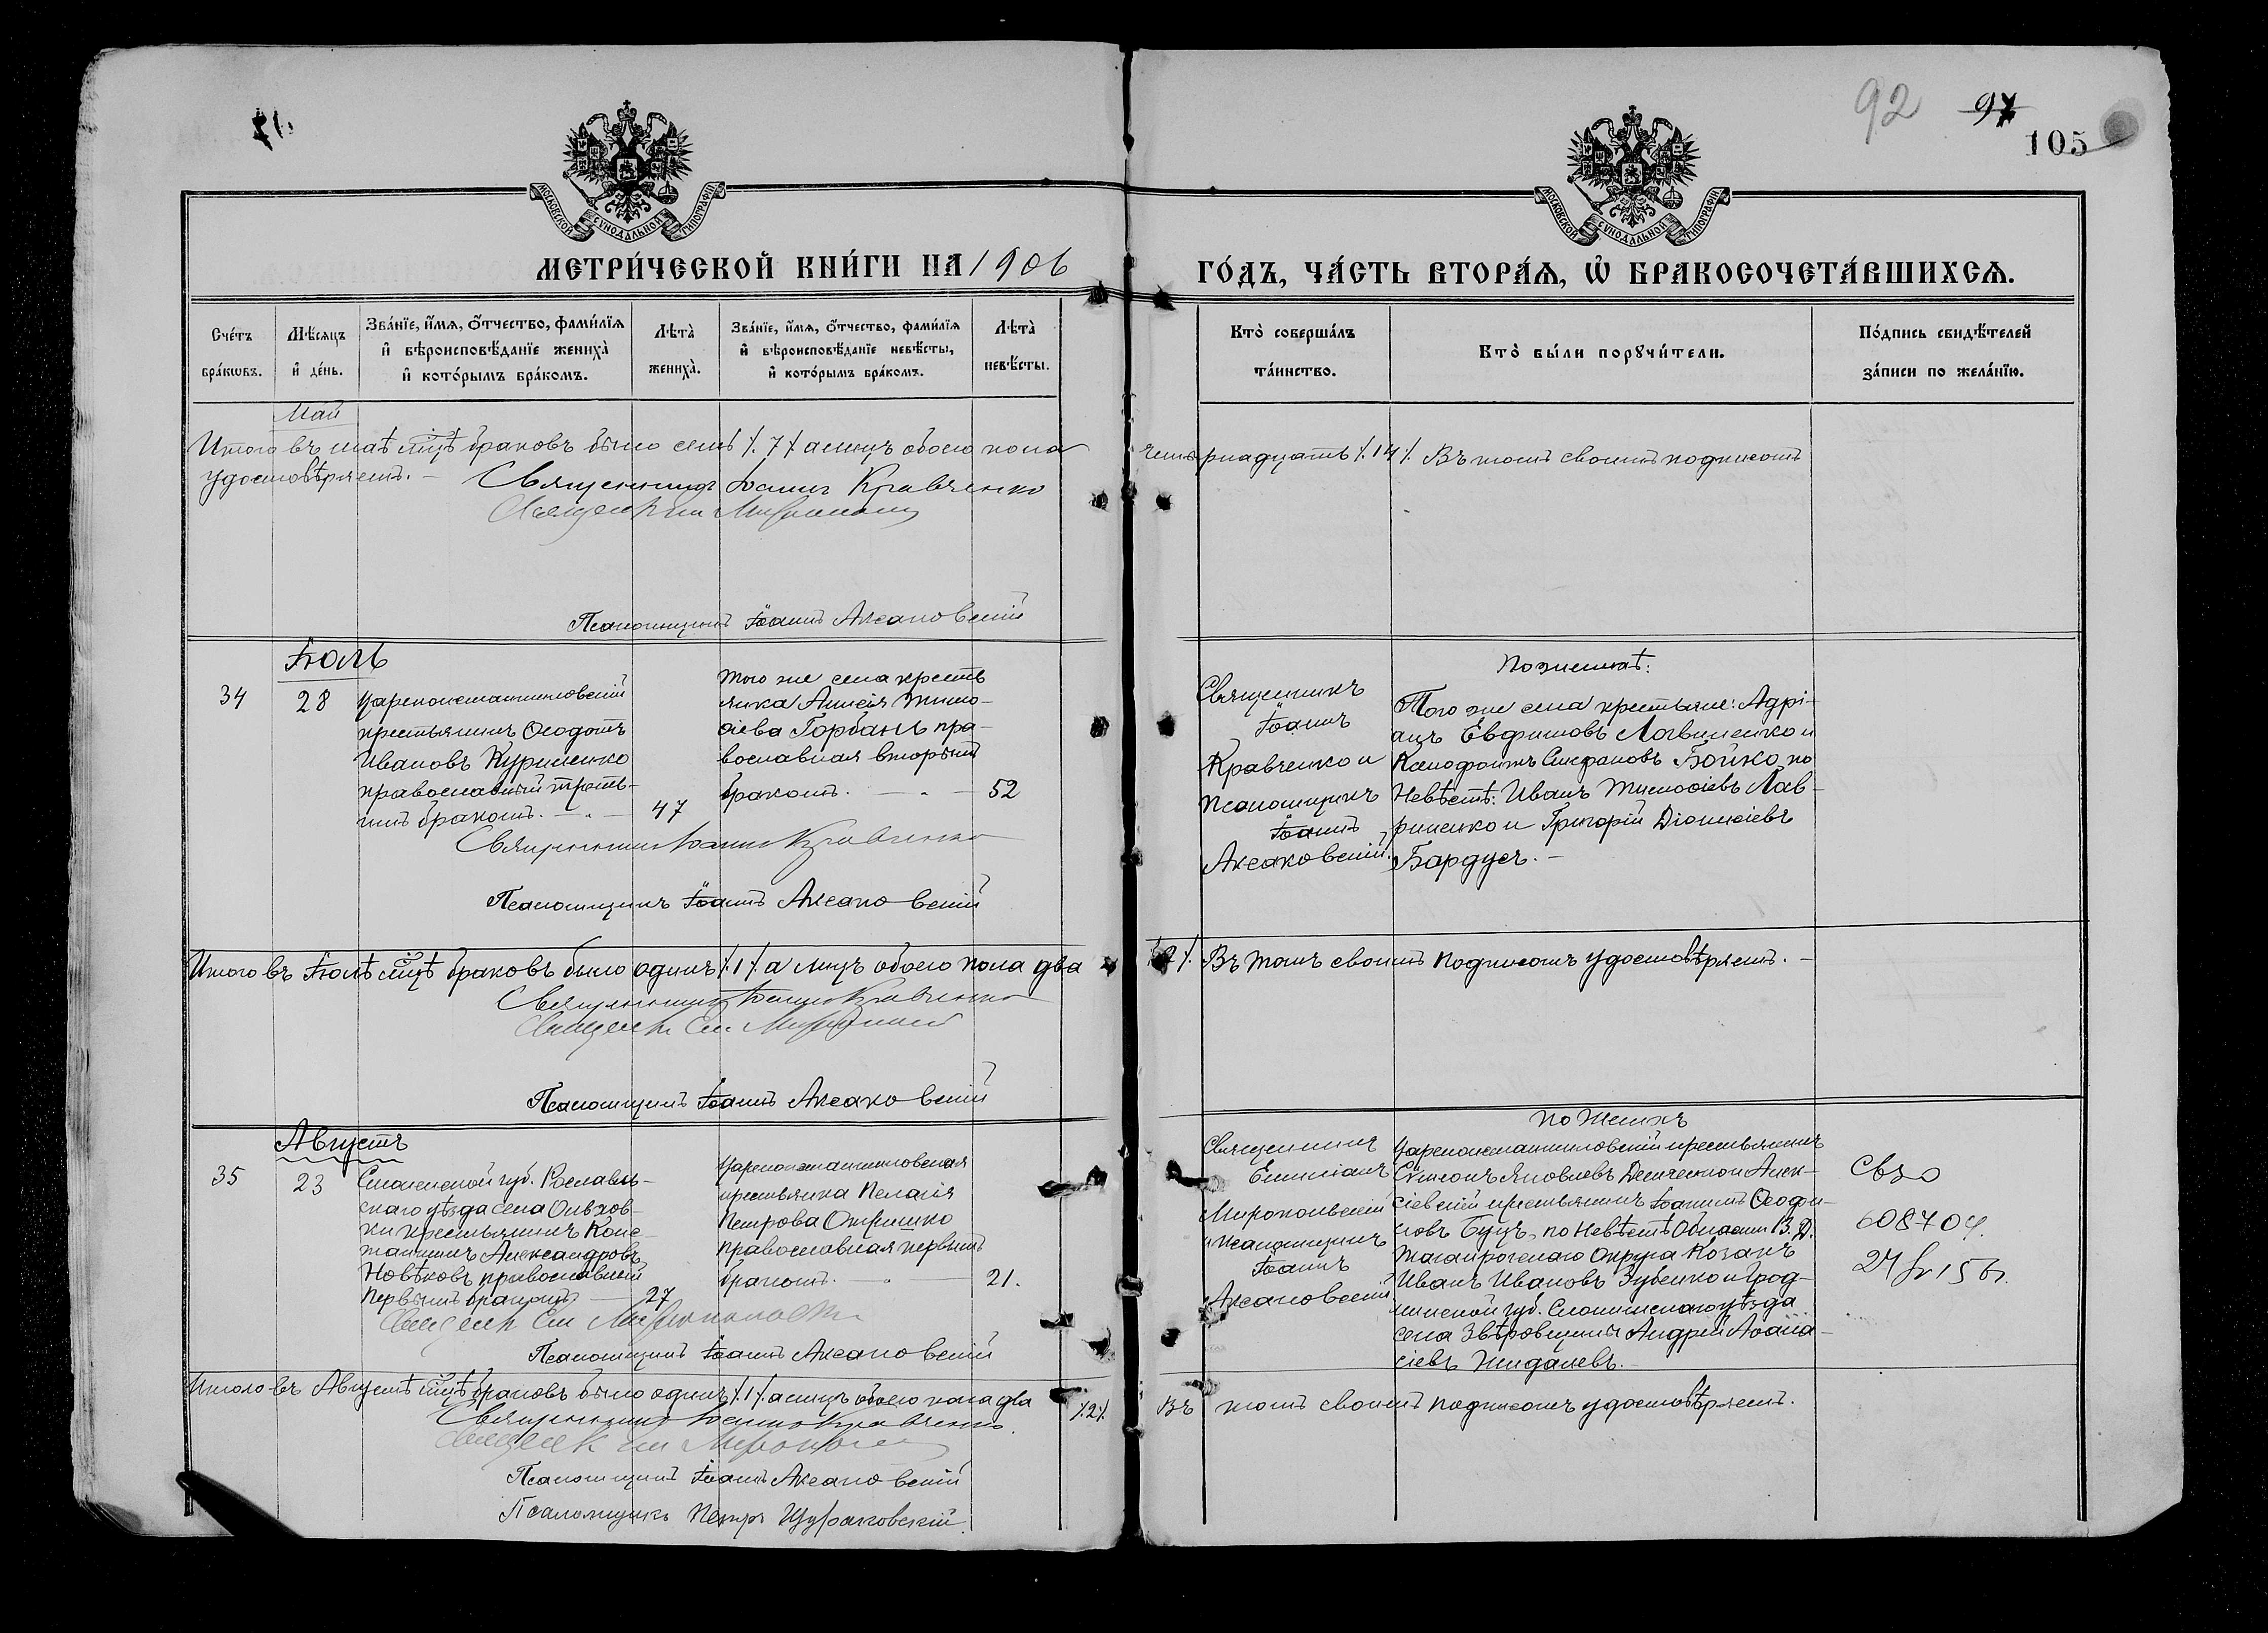 92 97
105
МОСКОВСКОЙ СѴНОДАЛЬНОЙ ТИПОГРАФІИ
МОСКОВСКОЙ СѴНОДАЛЬНОЙ ТИПОГРАФІИ
МЕТРИ́ЧЕСКОЙ КНИ́ГИ НА 1906
ГО́ДЪ, ЧА́СТЬ ВТОРА́Я, Ѿ БРАКОСОЧЕТА́ВШИХСѦ.
Сче́тъ
бра́кѡвъ.
Мѣ́сяцъ
и҆ де́нь.
Зва́нїе, и҆́мѧ, ѻ҆́тчество, фами́лїѧ
и҆ вѣроисповѣ́данїе жениха̀
и҆ кото́рымъ бра́комъ.
Лѣта̀
жениха̀.
Зва́нїе, и҆́мѧ, ѻ҆́тчество, фами́лїѧ
и҆ вѣроисповѣ́данїе невѣ́сты,
и҆ кото́рымъ бра́комъ.
Лѣта̀
невѣ́сты.
Кто̀ соверша́лъ
та́инство.
Кто̀ бы́ли порꙋчи́тели.
По́дпись свидѣ́телей
за́писи по жела́нїю.
Май
Итого въ маѣ мцѣ браковъ было семь ⁒ 7 ⁒ а лицъ обоего пола
четырнадцать ⁒ 14 ⁒. Въ томъ своимъ подписомъ
удостовѣряемъ. – Священникъ Іоаннъ Кравченко
Псаломщикъ Іоаннъ Аксаковскій
Іюль
34
28
Цареконстантиновскій
крестьянинъ Ѳеодотъ
Ивановъ Куриленко
православный треть-
имъ бракомъ. — 47
того же села кресть
янка Анисія Тимо-
ѳіева Горбань пра-
вославная вторымъ
бракомъ. — 52
Священникъ
Іоаннъ
Кравченко и
Псаломщикъ
Іоаннъ
Аксаковскій.
По женихѣ:
Того же села крестьяне: Адрі-
анъ Евфимовъ Логвиненко и
Ксенофонтъ Стефановъ Бойко, по
Невѣстѣ: Иванъ Тимоѳіевъ Лав-
риненко и Григорій Діонисіевъ
Бардусъ. –
Священникъ Іоаннъ Кравченко
Псаломщикъ Іоаннъ Аксаковскій
Итого въ Іюлѣ мцѣ браковъ было одинъ ⁒ 1 ⁒ а лицъ обоего пола два
⁒ 2 ⁒. Въ томъ своимъ подписомъ удостовѣряемъ. –
Священникъ Іоаннъ Кравченко
Псаломщикъ Іоаннъ Аксаковскій
Августъ
35
23
Смоленской губ. Рославль-
скаго уѣзда села Ольхов-
ки крестьянинъ Конс-
тантинъ Александровъ
Новѣковъ православный
первымъ бракомъ — 27
Цареконстантиновская
крестьянка Пелагія
Петрова Онришко
православная первымъ
бракомъ. — 21.
Священникъ
Емиліанъ
Миропольскій
и псаломщикъ
Іоаннъ
Аксаковскій
По Женихѣ
Цареконстантиновскій крестьянинъ
Сѵмеонъ Яковлевъ Демченко и Алек-
сіевскій крестьянинъ Іоаннъ Ѳеодо-
совъ Буцъ, по Невѣстѣ Области В. Д.
Таганрогскаго Округа Козакъ
Иванъ Ивановъ Зубенко и Грод-
ненской губ. Слонимскаго уѣзда
села Звѣровщины Андрей Аѳана-
сіевъ Жигалевъ.
Св зо
608704.
Псаломщикъ Іоаннъ Аксаковскій
Итого въ Августѣ мцѣ браковъ было одинъ ⁒ 1 ⁒ а лицъ обоего пола два
⁒ 2 ⁒. Въ томъ своимъ подписомъ удостовѣряемъ.
Священникъ Іоаннъ Кравченко.
Псаломщикъ Іоаннъ Аксаковскій
Псаломщикъ Петръ